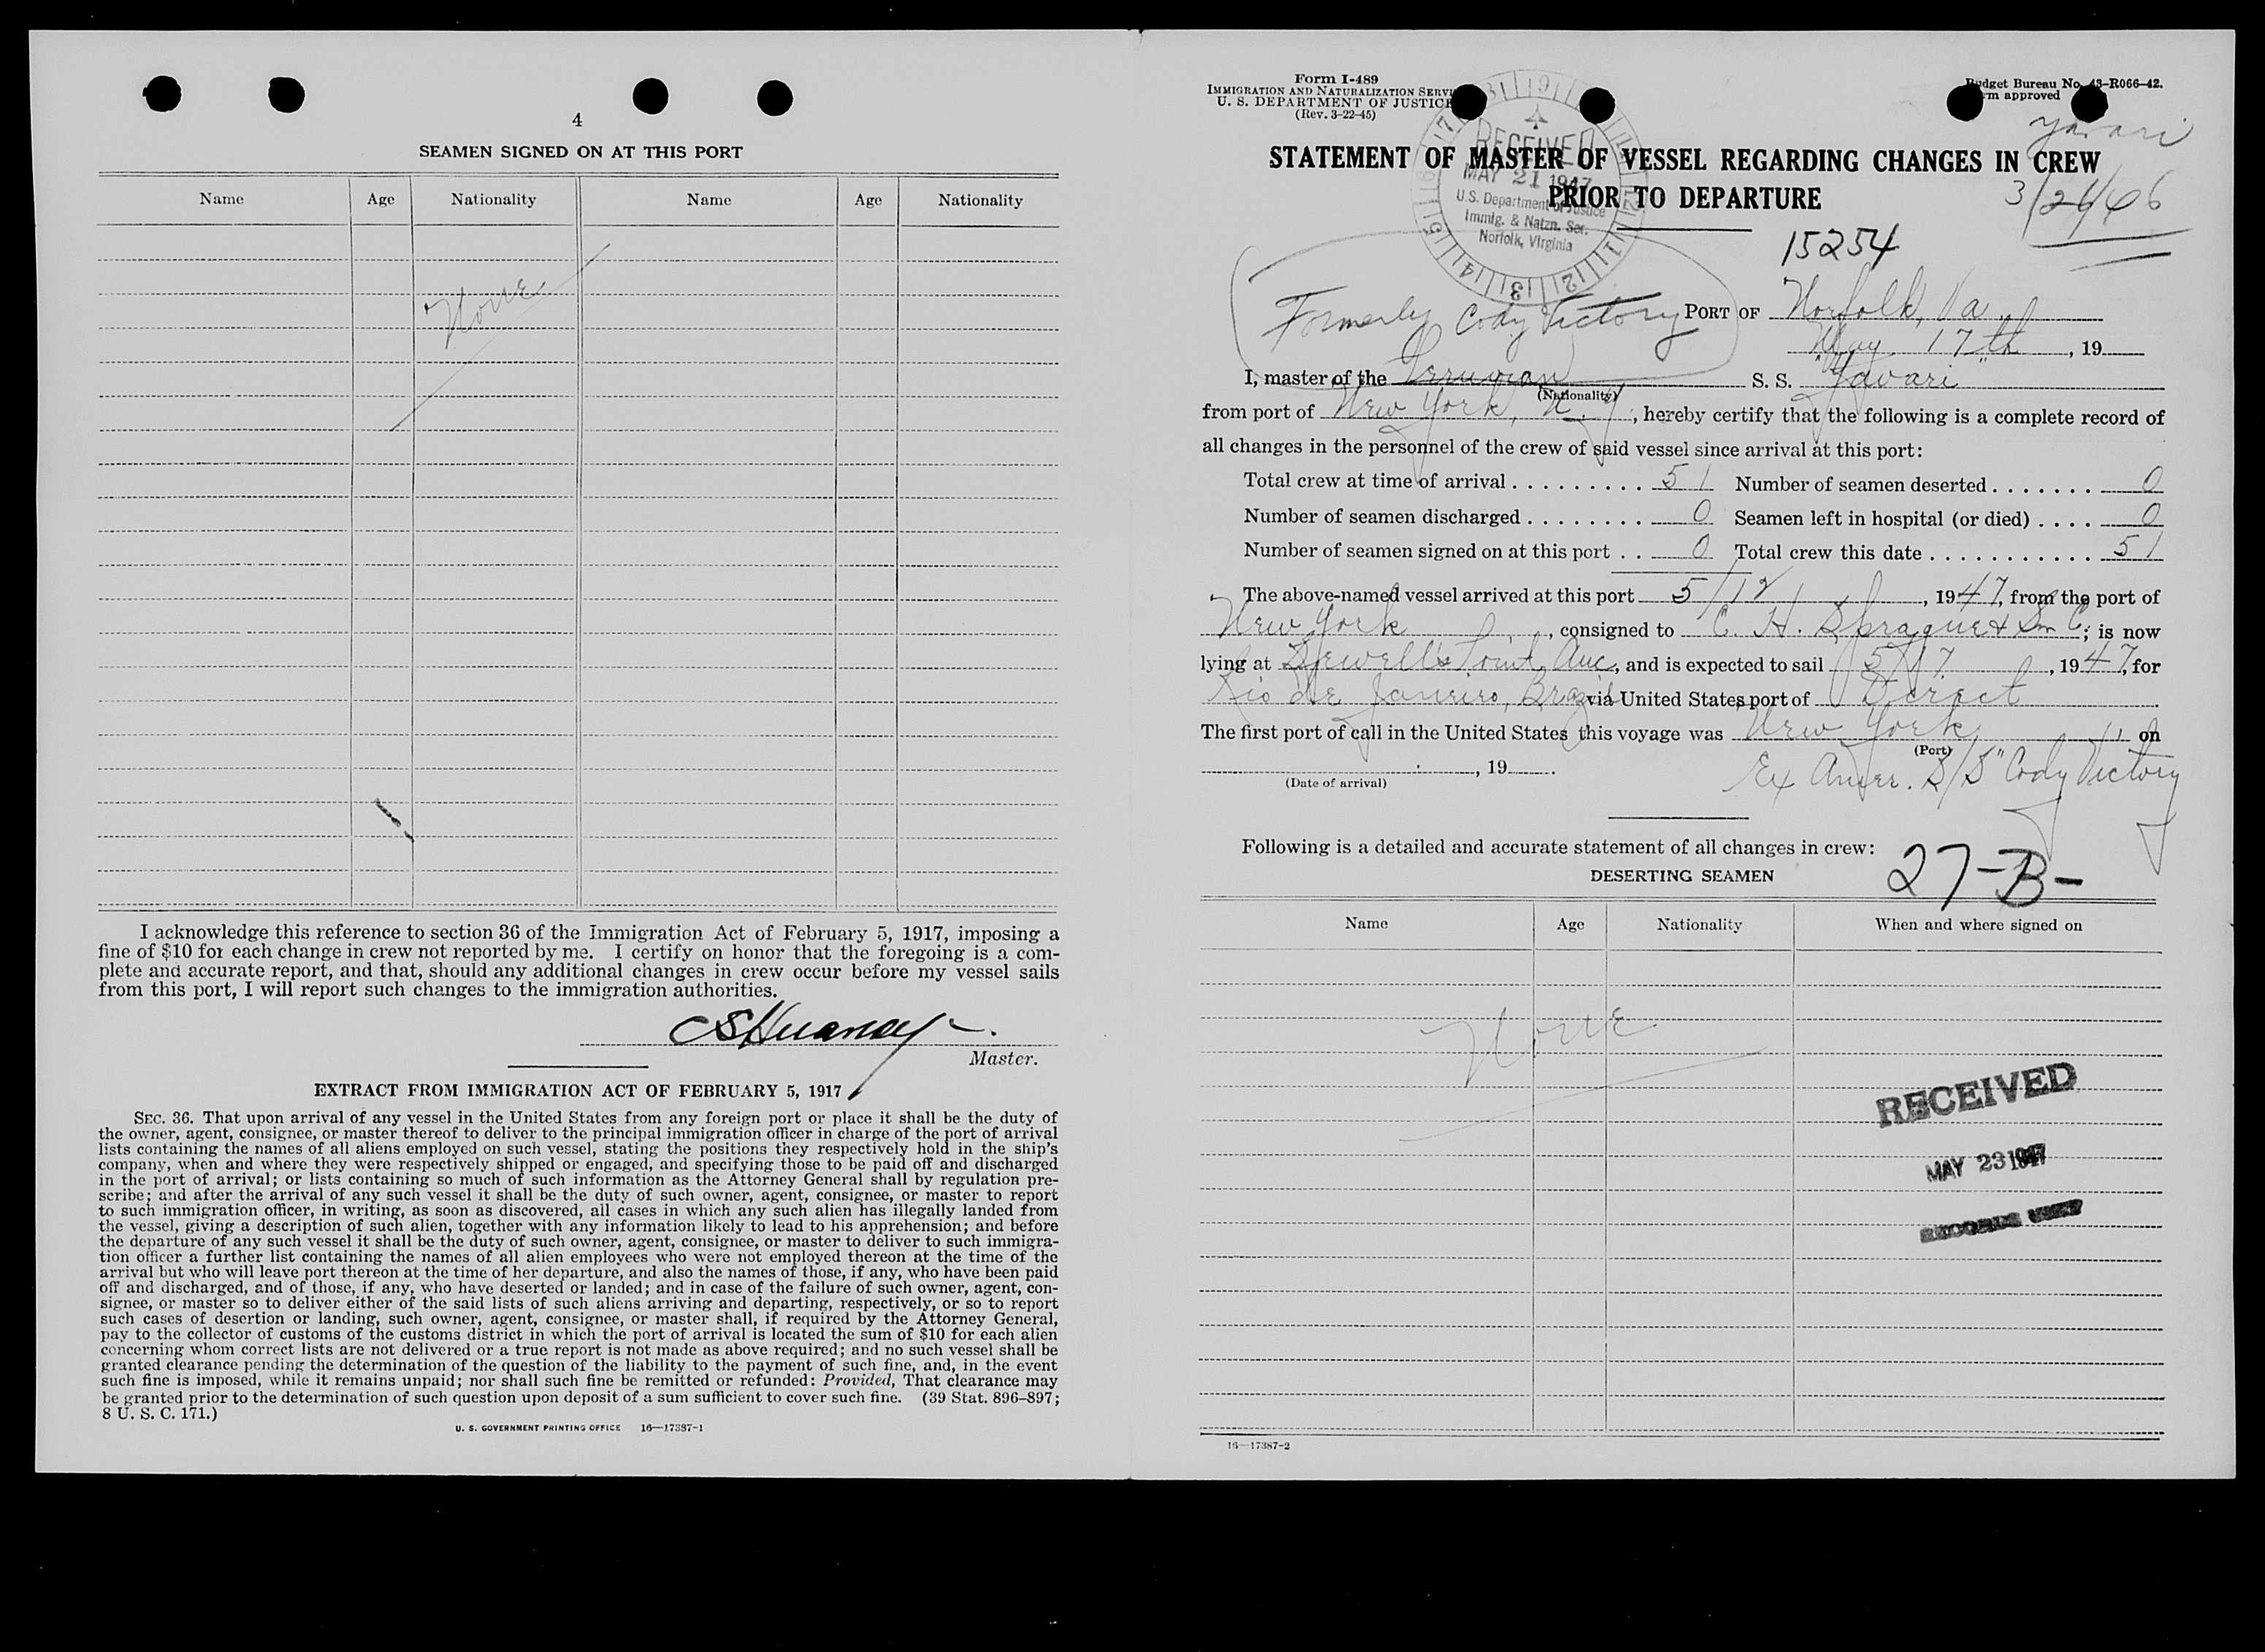 4
SEAMEN SIGNED ON AT THIS PORT
Name Age Nationality Name Age Nationality
None
I acknowledge this reference to section 36 of the Immigration Act of February 5, 1917, imposing a
fine of $10 for each change in crew not reported by me. I certify on honor that the foregoing is a com-
plete and accurate report, and that, should any additional changes in crew occur before my vessel sails
from this port, I will report such changes to the immigration authorities.
Master.
EXTRACT FROM IMMIGRATION ACT OF FEBRUARY 5, 1917
SEC. 36. That upon arrival of any vessel in the United States from any foreign port or place it shall be the duty of
the owner, agent, consignee, or master thereof to deliver to the principal immigration officer in charge of the port of arrival
lists containing the names of all aliens employed on such vessel, stating the positions they respectively hold in the ship's
company, when and where they were respectively shipped or engaged, and specifying those to be paid off and discharged
in the port of arrival; or lists containing so much of such information as the Attorney General shall by regulation pre-
scribe; and after the arrival of any such vessel it shall be the duty of such owner, agent, consignee, or master to report
to such immigration officer, in writing, as soon as discovered, all cases in which any such alien has illegally landed from
the vessel, giving a description of such alien, together with any information likely to lead to his apprehension; and before
the departure of any such vessel it shall be the duty of such owner, agent, consignee, or master to deliver to such immigra-
tion officer a further list containing the names of all alien employees who were not employed thereon at the time of the
arrival but who will leave port thereon at the time of her departure, and also the names of those, if any, who have been paid
off and discharged, and of those, if any, who have deserted or landed; and in case of the failure of such owner, agent, con-
signee, or master so to deliver either of the said lists of such aliens arriving and departing, respectively, or so to report
such cases of desertion or landing, such owner, agent, consignee, or master shall, if required by the Attorney General,
pay to the collector of customs of the customs district in which the port of arrival is located the sum of $10 for each alien
concerning whom correct lists are not delivered or a true report is not made as above required; and no such vessel shall be
granted clearance pending the determination of the question of the liability to the payment of such fine, and, in the event
such fine is imposed, while it remains unpaid; nor shall such fine be remitted or refunded: Provided, That clearance may
be granted prior to the determination of such question upon deposit of a sum sufficient to cover such fine. (39 Stat. 896-897;
8 U. S. C. 171.)
U. S. GOVERNMENT PRINTING OFFICE 16—17387-1
Form I-489
IMMIGRATION AND NATURALIZATION SERVI
U. S. DEPARTMENT OF JUSTICE
(Rev. 3-22-45)
Budget Bureau No. 43-R066-42.
m approved
Yavari
RECEIVED
MAY 21 1947
U.S. Department of Justice
Immig. & Natzn. Ser.
Norfolk, Virginia
STATEMENT OF MASTER OF VESSEL REGARDING CHANGES IN CREW
PRIOR TO DEPARTURE
15254
Formerly Cody Victory
PORT OF Norfolk, Va
May 17th, 19
I, master of the Peruvian S. S. "Yavari"
(Nationality)
from port of New York, N.Y., hereby certify that the following is a complete record of
all changes in the personnel of the crew of said vessel since arrival at this port:
Total crew at time of arrival 51 Number of seamen deserted 0
Number of seamen discharged 0 Seamen left in hospital (or died) 0
Number of seamen signed on at this port 0 Total crew this date 51
The above-named vessel arrived at this port 5/12, 1947, from the port of
New York, consigned to C. H. Sprague & Son C; is now
lying at Sewell's Point, Anc, and is expected to sail 5/17, 1947, for
Rio de Janeiro, Brazil via United States port of Direct
The first port of call in the United States this voyage was New York on
(Port)
, 19
(Date of arrival)
Ex Amer. S/S "Cody Victory
Following is a detailed and accurate statement of all changes in crew:
27-B-
DESERTING SEAMEN
Name Age Nationality When and where signed on
None
RECEIVED
MAY 23 1947
16—17387-2